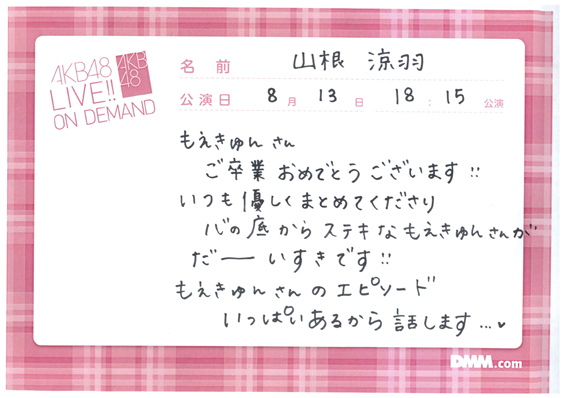 AKB48
LIVE!!
ON DEMAND
AKB
48
名前 山根 涼羽
公演日 8月 13日 18:15 公演
もえきゅんさん
ご卒業 おめでとうございます!!
いつも優しくまとめてくださり
心の底から ステキなもえきゅんさんが
だーいすきです!!
もえきゅんさんのエピソード
いっぱいあるから 話します...♥
DMM.com